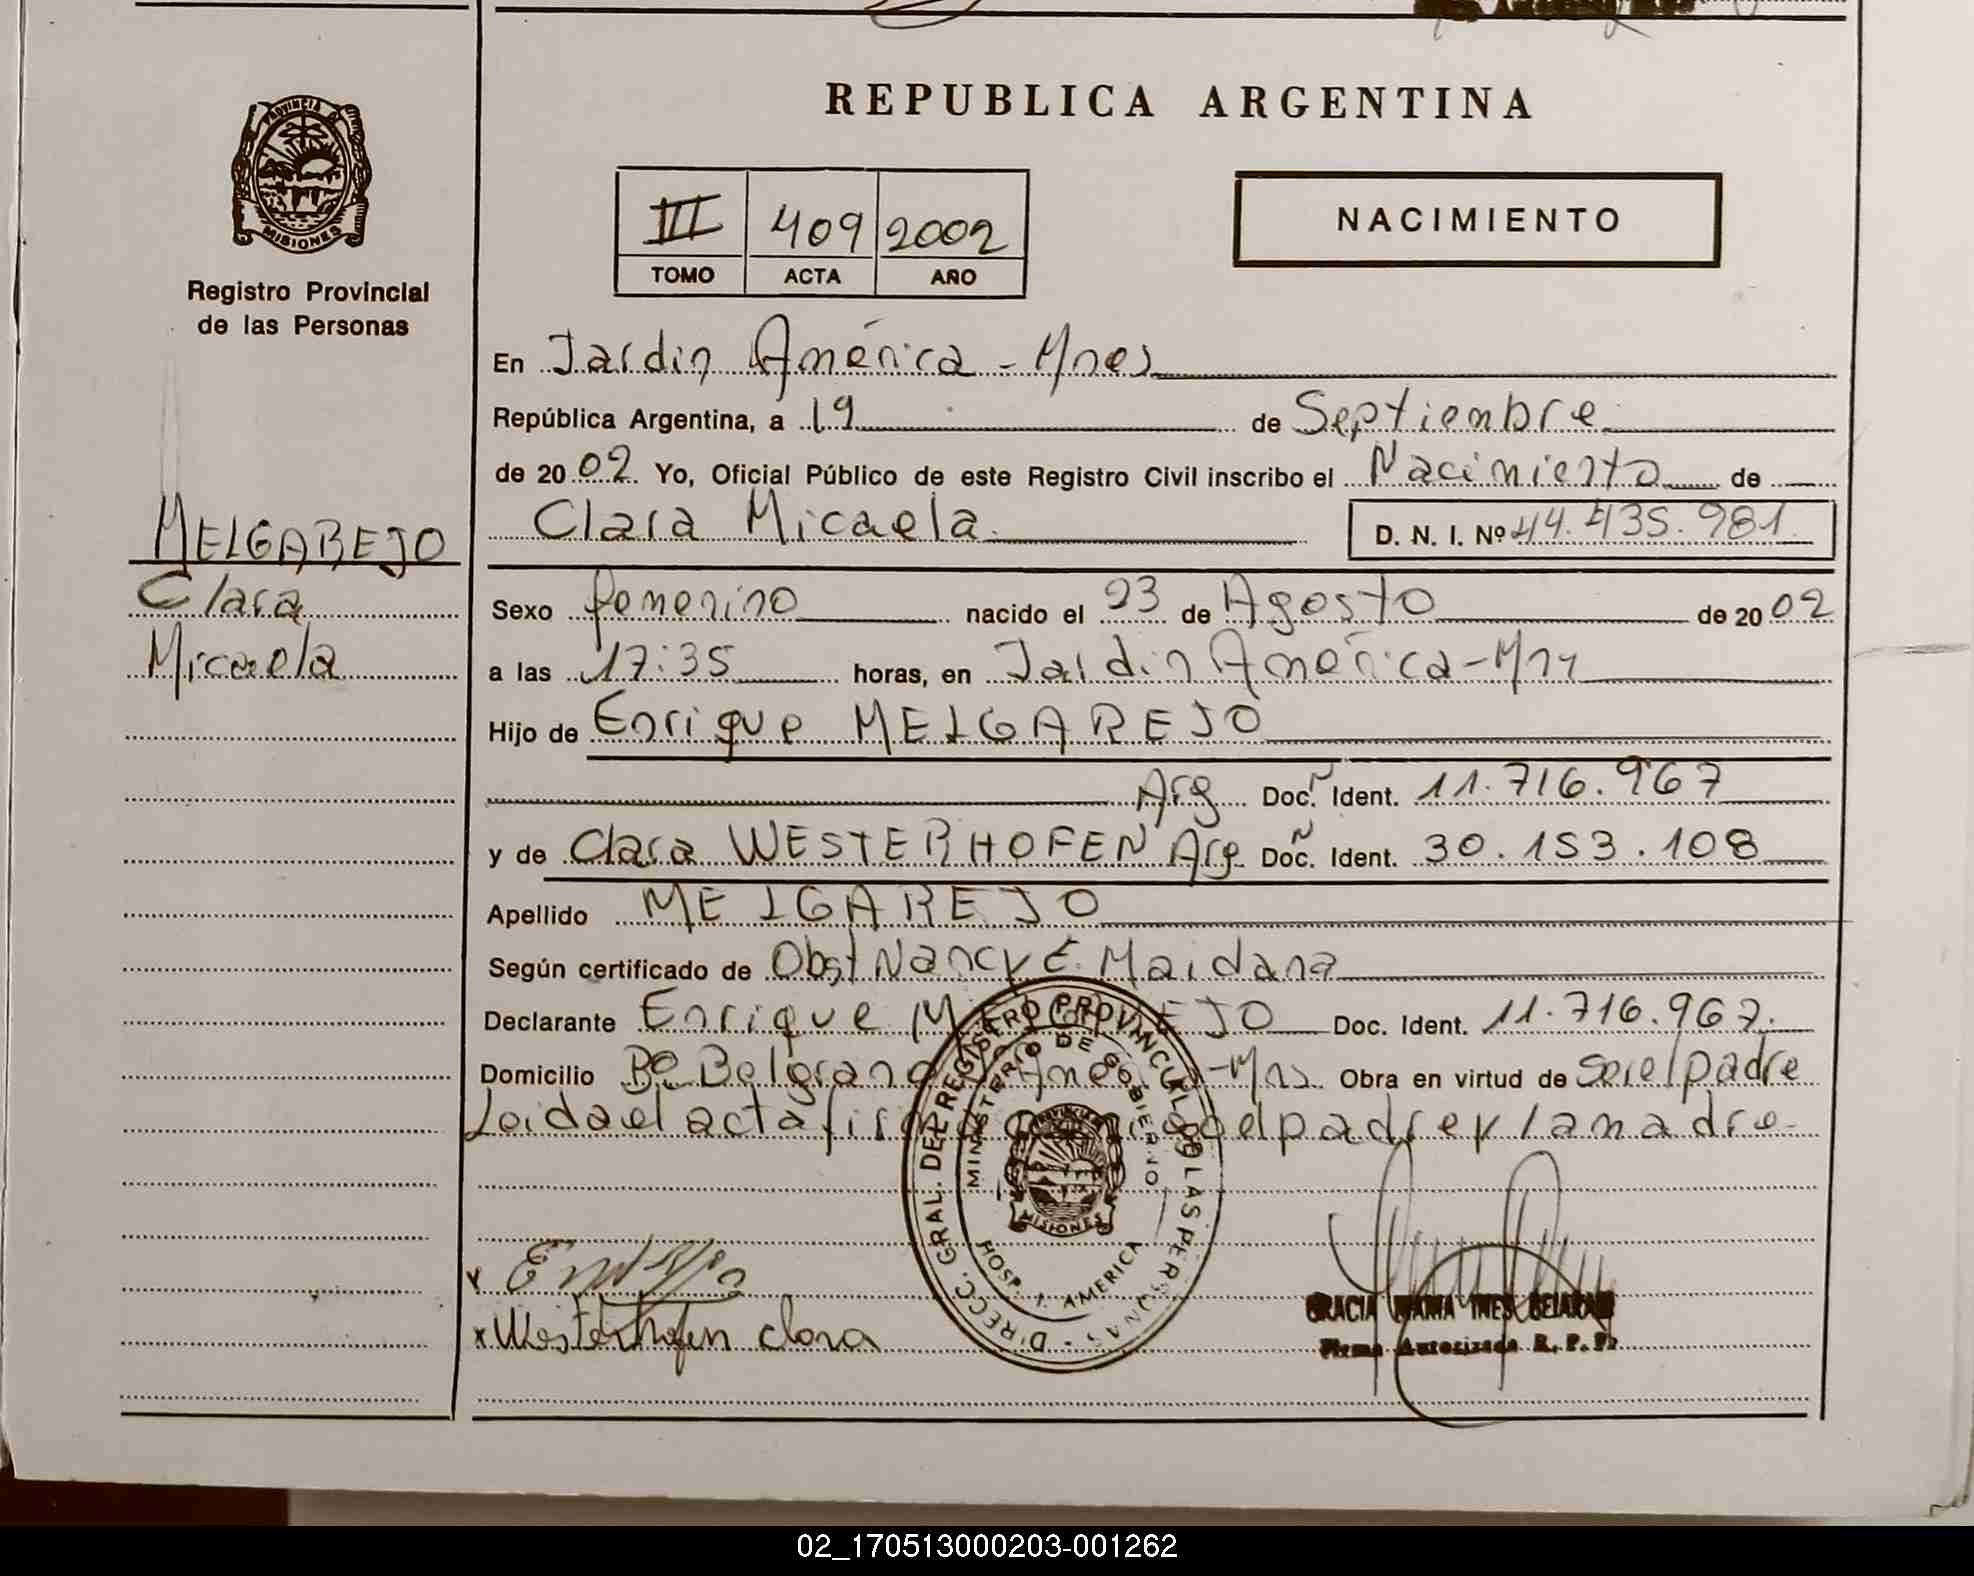 REPUBLICA ARGENTINA
PROVINCIA D MISIONES
Registro Provincial
de las Personas
III 409 2002
TOMO ACTA AÑO
NACIMIENTO
En Jardin América - Mnes
República Argentina, a 19 de Septiembre
de 2002 Yo, Oficial Público de este Registro Civil inscribo el Nacimiento de
Clara Micaela D. N. I. Nº 44.435.981
MELGAREJO
Clara
Micaela
Sexo femenino nacido el 23 de Agosto de 2002
a las 17:35 horas, en Jardin América - Mns
Hijo de Enrique MELGAREJO
Arg Doc. Ident. 11.716.967
y de Clara WESTERHOFEN Arg Doc. Ident. 30.153.108
Apellido MELGAREJO
Según certificado de Obst Nancy E. Maidana
Declarante Enrique MELGAREJO Doc. Ident. 11.716.967.
Domicilio Bº Belgrano - Mns Obra en virtud de ser el padre
Leida el acta el padre y la madre
DIRECC. GRAL. DEL REGISTRO PROVINCIAL DE LAS PERSONAS
MINISTERIO DE GOBIERNO
MISIONES
HOSP. J. AMERICA
x
x Westerhofen Clara
GRACIA MARIA INES
Firma Autorizada R. P. P.
02_170513000203-001262